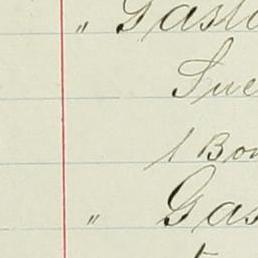 " Gasto
Swe
1 Box
" Gas